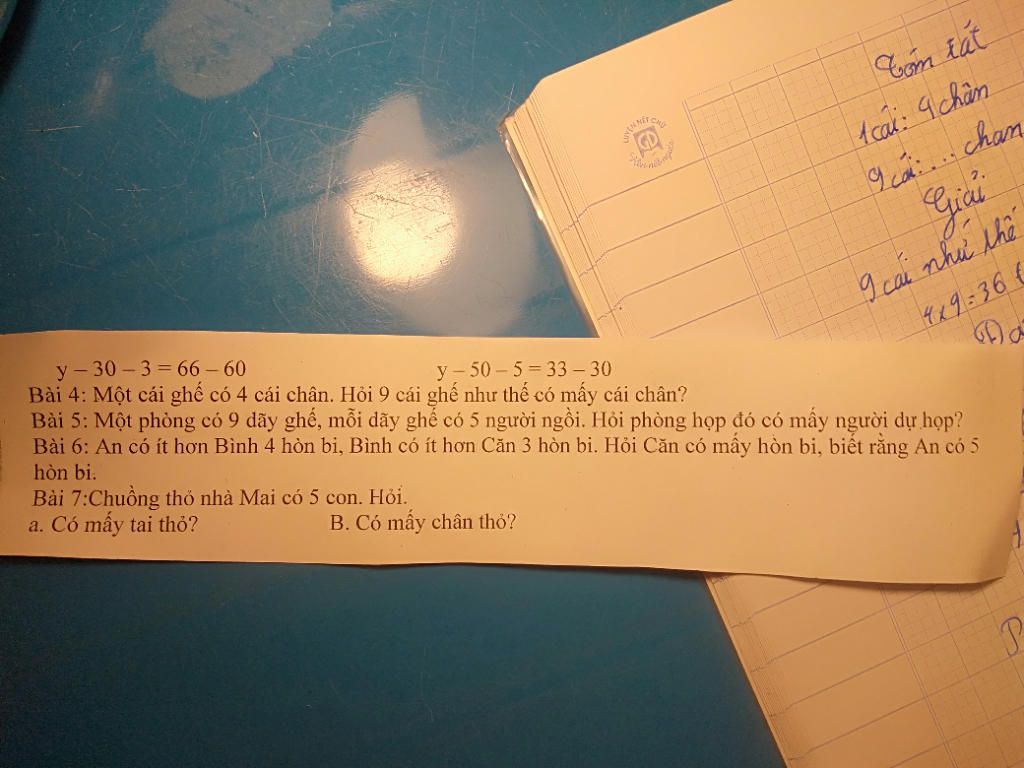 Tóm tắt
1 cái: 4 chân
9 cái: ... chan
Giải
9 cái như thế
4 x 9 = 36 (
LUYỆN NÉT CHỮ
y – 30 – 3 = 66 – 60 y – 50 – 5 = 33 – 30
Bài 4: Một cái ghế có 4 cái chân. Hỏi 9 cái ghế như thế có mấy cái chân?
Bài 5: Một phòng có 9 dãy ghế, mỗi dãy ghế có 5 người ngồi. Hỏi phòng họp đó có mấy người dự họp?
Bài 6: An có ít hơn Bình 4 hòn bi, Bình có ít hơn Căn 3 hòn bi. Hỏi Căn có mấy hòn bi, biết rằng An có 5
hòn bi.
Bài 7:Chuồng thỏ nhà Mai có 5 con. Hỏi.
a. Có mấy tai thỏ? B. Có mấy chân thỏ?